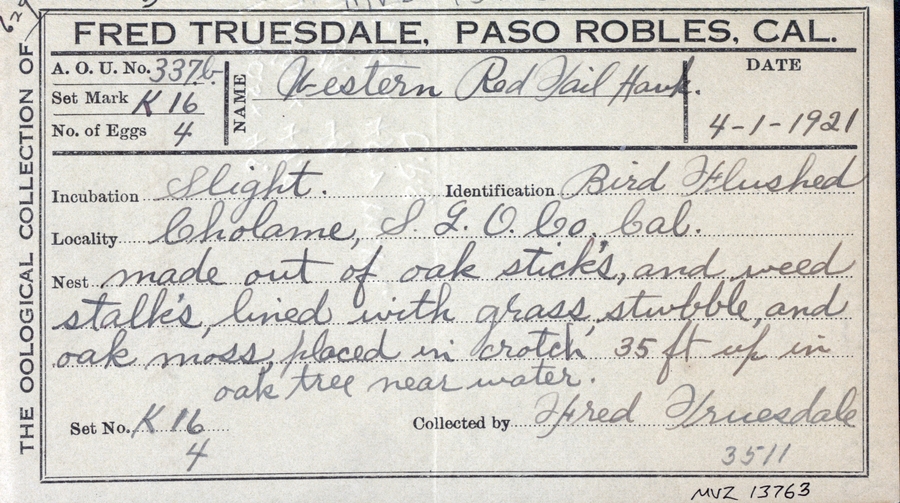 THE OOLOGICAL COLLECTION OF
FRED TRUESDALE, PASO ROBLES, CAL.
A. O. U. No. 337b
Set Mark K 16
No. of Eggs 4
NAME Western Red Tail Hawk.
DATE
4-1-1921
Incubation Slight. Identification Bird Flushed
Locality Cholame, S. L. O. Co. Cal.
Nest made out of oak stick's, and weed
stalk's, lined with grass, stubble, and
oak moss, placed in crotch 35 ft up in
oak tree near water.
Set No. K 16
4
Collected by Fred Truesdale
3511
MVZ 13763